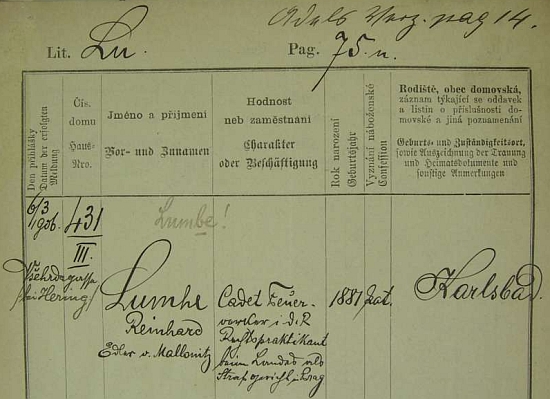 Adels Verz. pag 14.
Lit. Lu. Pag. 75. n.
Den přihlášky
Datum der erfolgten
Meldung
Čís.
domu
Haus-
Nro.
Jméno a příjmení
Vor- und Zunamen
Hodnost
neb zaměstnání
Charakter
oder Beschäftigung
Rok narození
Geburtsjahr
Vyznání náboženské
Confession
Rodiště, obec domovská,
záznam týkající se oddavek
a listin o příslušnosti do-
movské a jiná poznamenání
Geburts- und Zuständigkeitsort,
sowie Aufzeichnung der Trauung
und Heimatsdokumente und
sonstige Anmerkungen
6/3
431
III.
Lumbe!
Všehrdagasse
bei Hering
Lumbe
Reinhard
Edler v. Mallonitz
Cadet Feuer-
werker i. d. R
Rechtspraktikant
beim Landes als
Strafgericht in Prag
1881
kat.
Karlsbad.